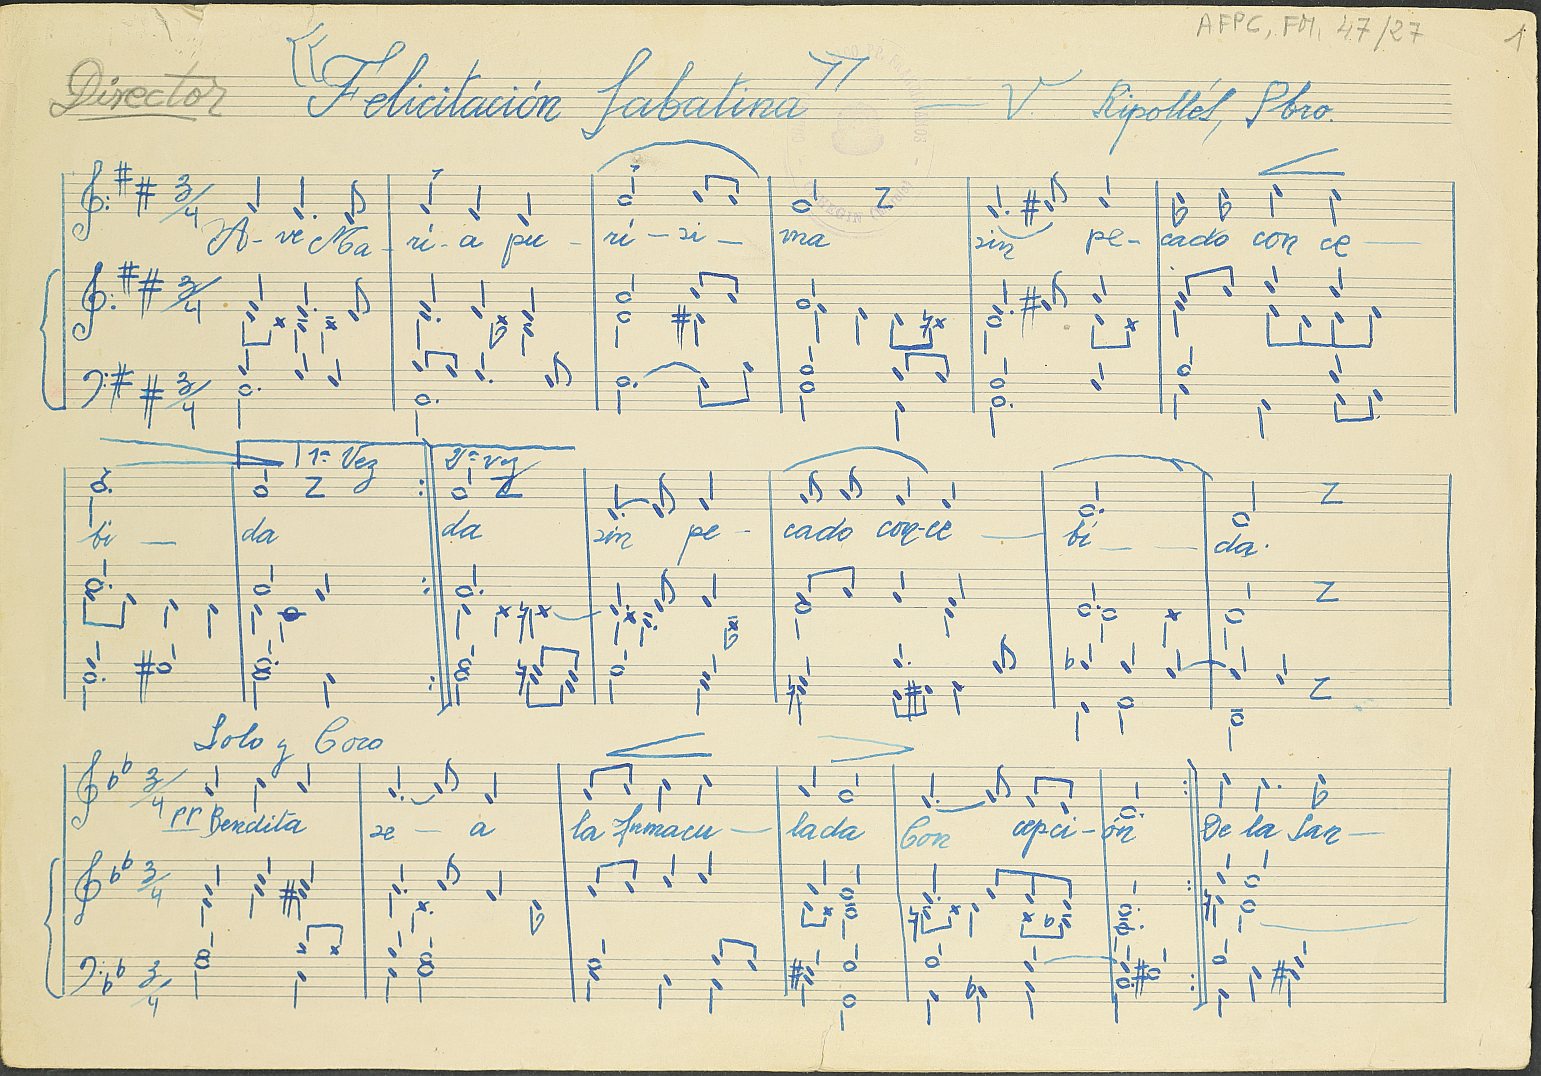 AFPC, FM, 47/27 1
Director "Felicitación Sabatina" — V. Ripollés, Pbro.
3/4 A- ve Ma- ri- a pu - ri - si - ma sin pe- cado con ce —
3/4
3/4
1ª Vez 2ª vez
bi — da da sin pe - cado con-ce — bi - - da.
Solo y Coro
3/4 pp Bendita se - a la Inmacu - lada Con cepci - ón De la San —
3/4
3/4